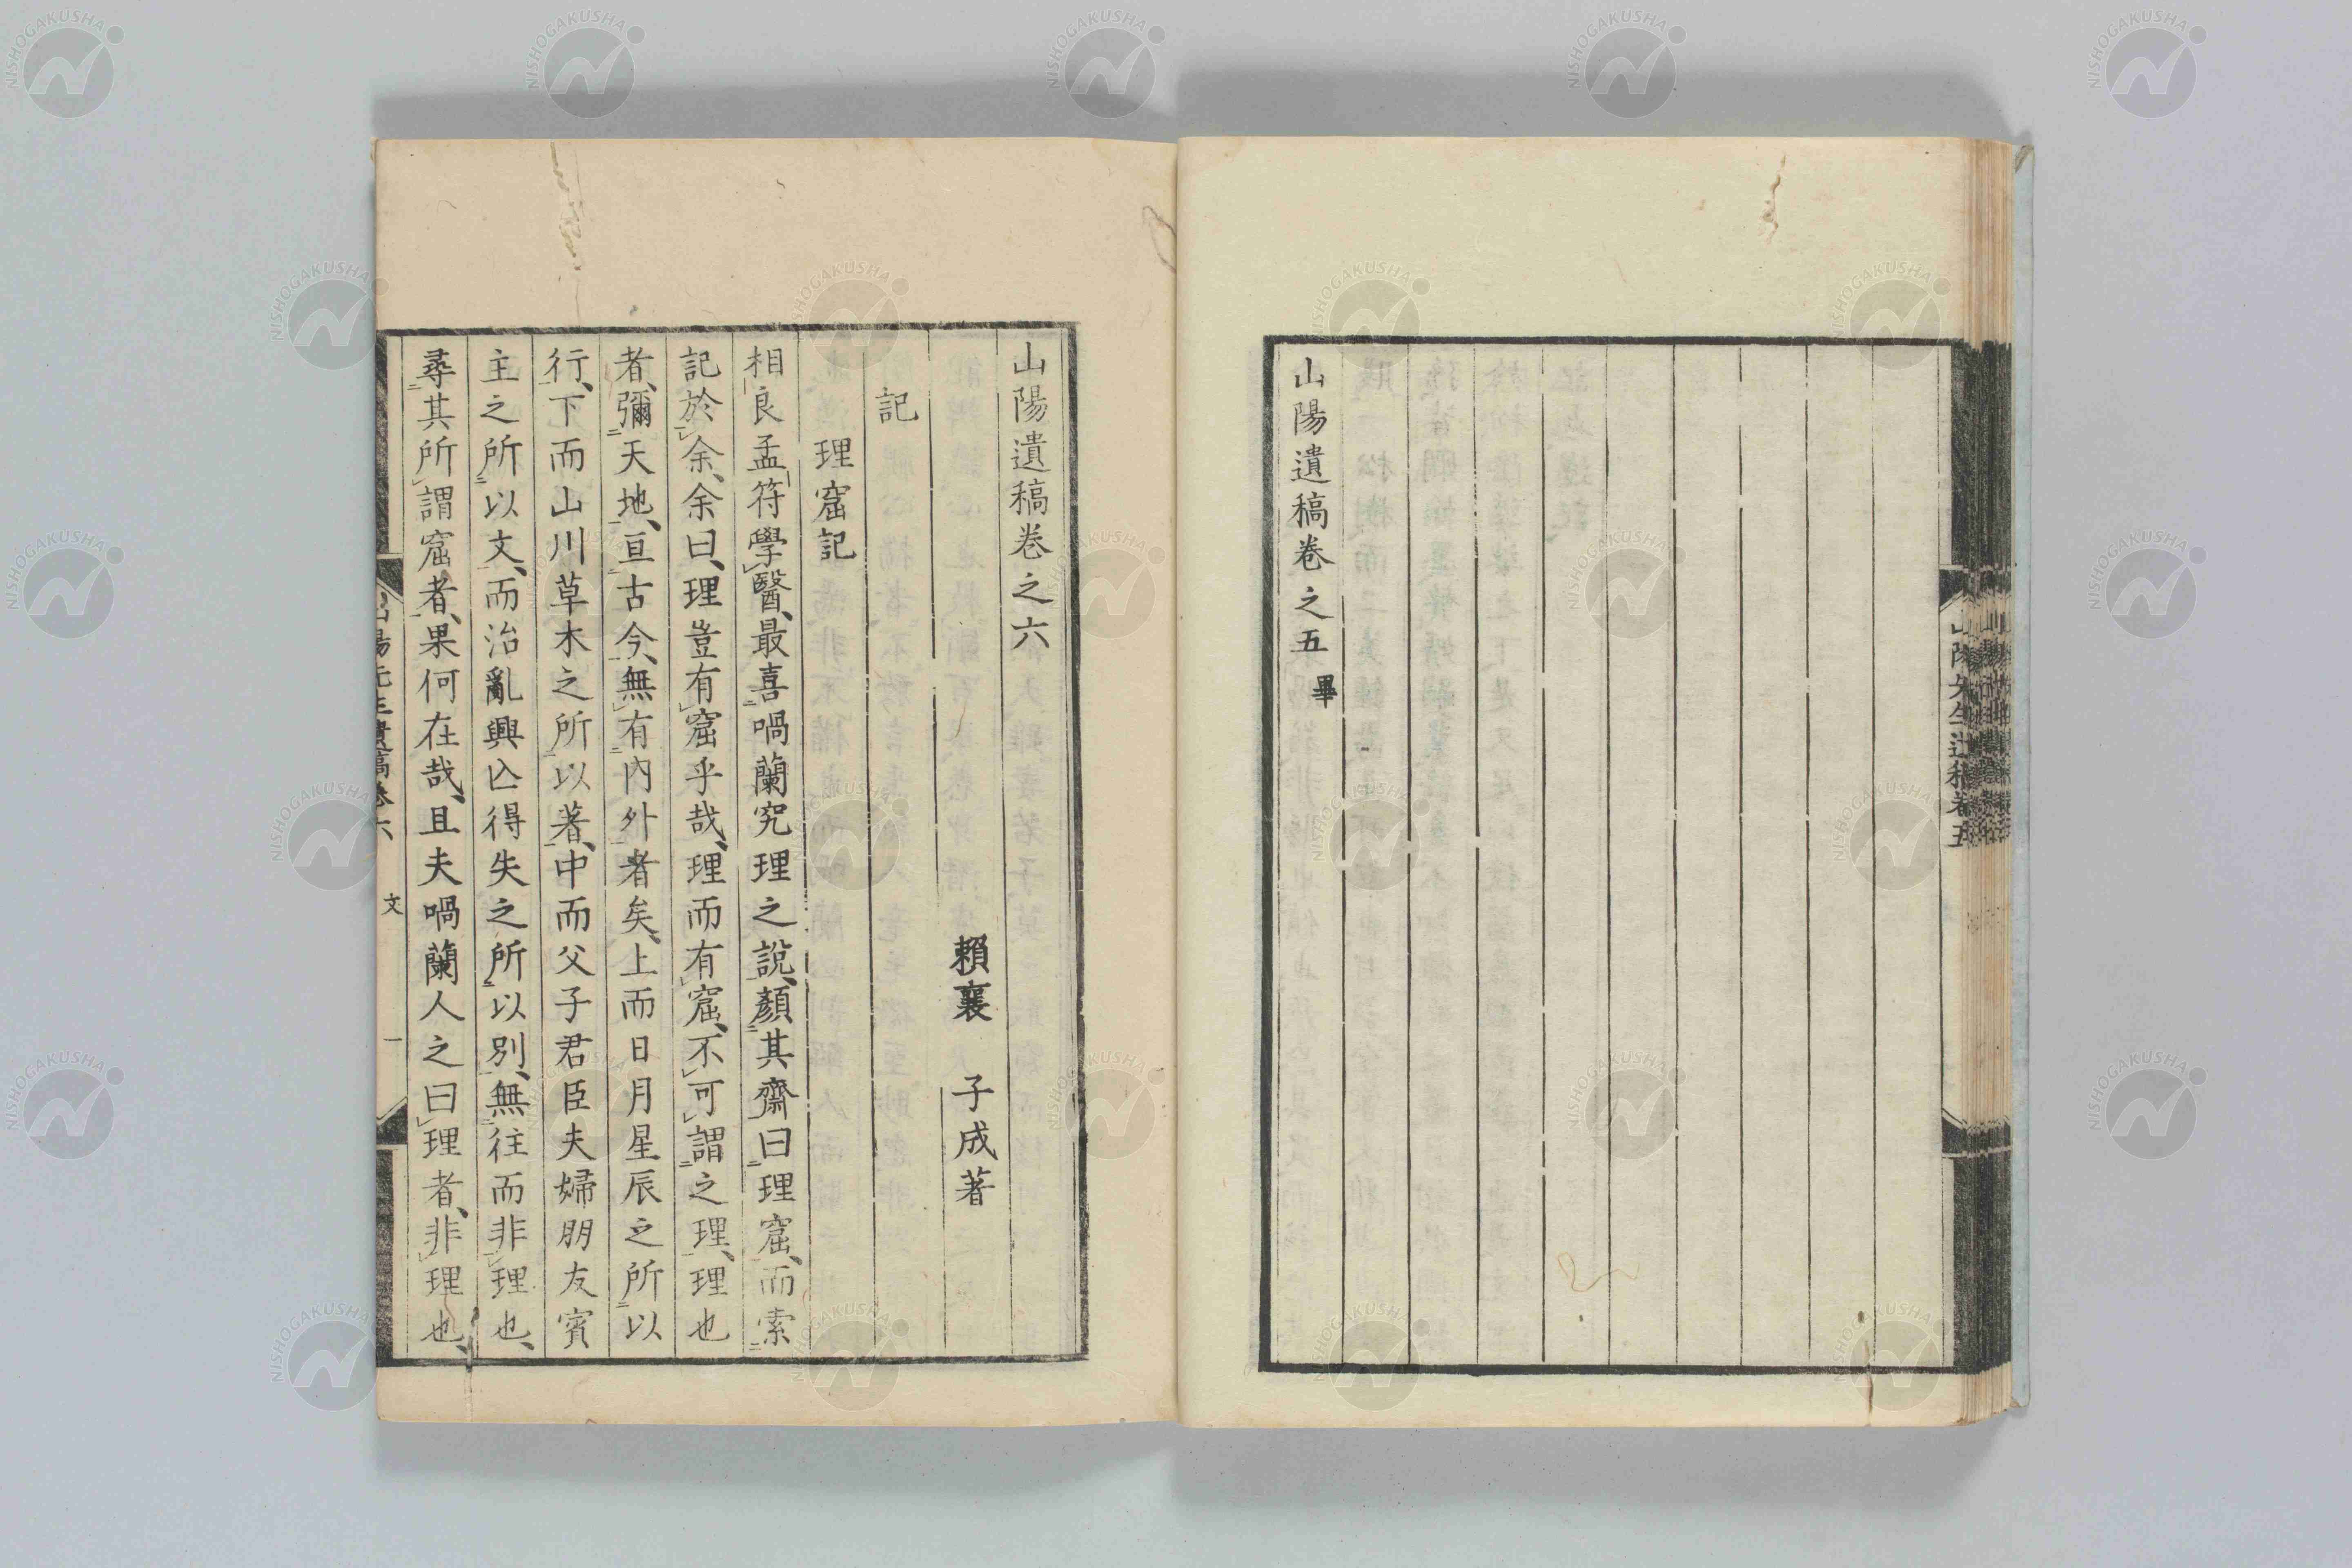 山陽遺稿卷之五 畢
山陽遺稿卷之六
賴襄 子成著
記
理窟記
相良孟符學醫、最喜喎蘭究理之說、顏其齋曰理窟、而索
記於余、余曰、理豈有窟乎哉、理而有窟、不可謂之理、理也
者、彌天地、亘古今、無有內外者矣、上而日月星辰之所以
行、下而山川草木之所以著、中而父子君臣夫婦朋友賓
主之所以文、而治亂興亾得失之所以別、無往而非理也、
尋其所謂窟者、果何在哉、且夫喎蘭人之曰理者、非理也、
山陽先生遺稿卷六 文 一
NISHOGAKUSHA